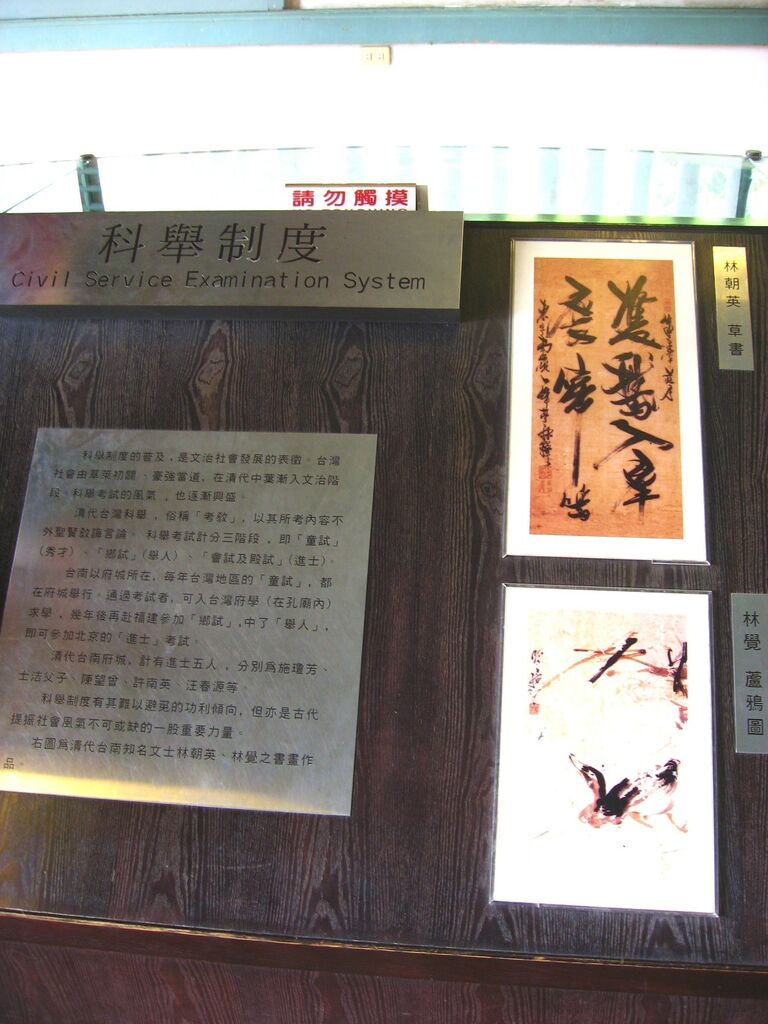 請勿觸摸
科舉制度
Civil Service Examination System
科舉制度的普及，是文治社會發展的表徵。台灣
社會由草萊初闢、豪強當道，在清代中葉漸入文治階
段，科舉考試的風氣，也逐漸興盛。
清代台灣科舉，俗稱「考敎」，以其所考內容不
外聖賢敎誨言論。科舉考試計分三階段，即「童試」
（秀才）、「鄉試」（舉人）、「會試及殿試」（進士）。
台南以府城所在，每年台灣地區的「童試」，都
在府城舉行。通過考試者，可入台灣府學（在孔廟內）
求學，幾年後再赴福建參加「鄉試」，中了「舉人」，
即可參加北京的「進士」考試。
清代台南府城，計有進士五人，分別為施瓊芳、
士洁父子、陳望曾、許南英、汪春源等。
科舉制度有其難以避免的功利傾向，但亦是古代
提振社會風氣不可或缺的一股重要力量。
右圖為清代台南知名文士林朝英、林覺之書畫作
品。
林朝英 草書
林覺 蘆鴉圖